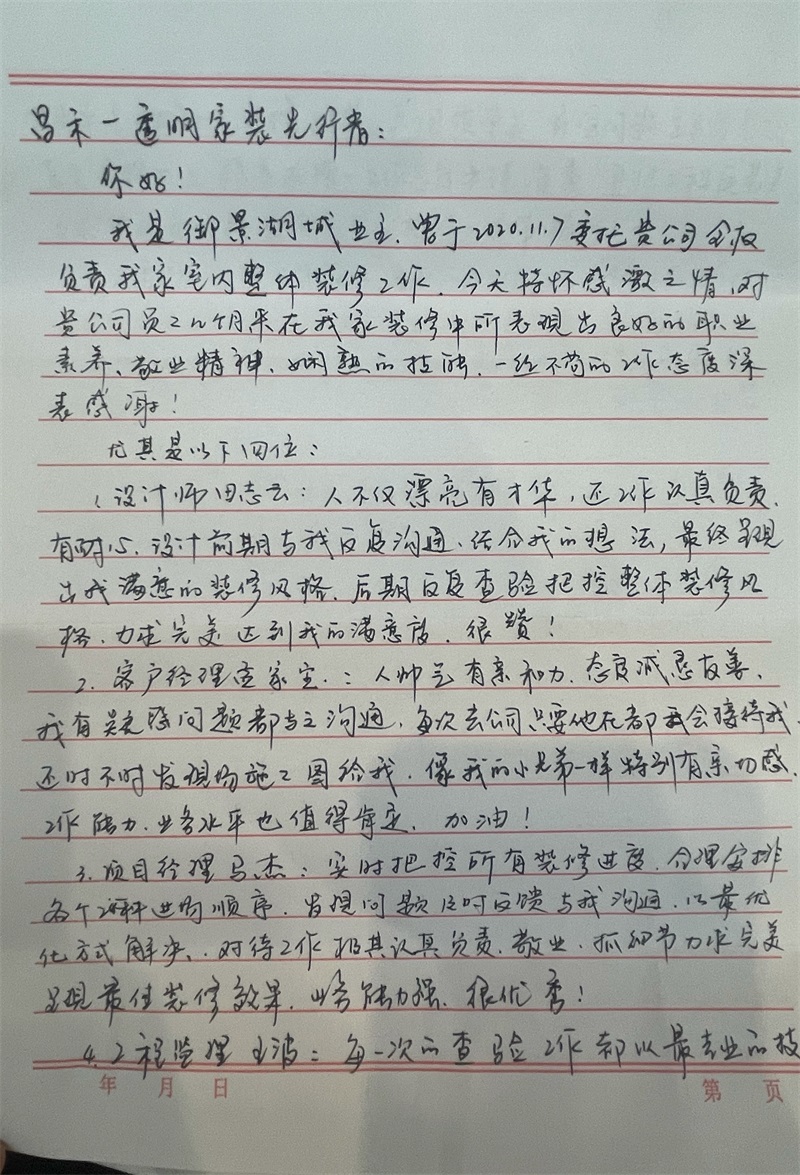 昌禾一透明家装先行者：
你好！
我是御景湖城业主，曾于2020.11.7委托贵公司全权
负责我家室内整体装修工作，今天特怀感激之情，对
贵公司员工几个月来在我家装修中所表现出良好的职业
素养、敬业精神、娴熟的技能、一丝不苟的工作态度深
表感谢！
尤其是以下四位：
1、设计师田志云：人不仅漂亮有才华，还工作认真负责，
有耐心，设计前期与我反复沟通、结合我的想法，最终呈现
出我满意的装修风格，后期反复查验把控整体装修风
格，力求完美达到我的满意度，很赞！
2、客户经理家宝：人帅气有亲和力，态度诚恳友善，
我有疑问题都与之沟通，每次去公司只要他在都会接待我，
还时不时发现场施工图给我，像我的小兄弟一样特别有亲切感，
工作能力，业务水平也值得肯定，加油！
3、项目经理马杰：实时把控所有装修进度，合理安排
各个工种进场顺序，发现问题及时反馈与我沟通，以最优
化方式解决，对待工作极其认真负责、敬业，抓细节力求完美
呈现最佳装修效果，业务能力强，很优秀！
4、工程监理王波：每一次的查验工作都以最专业的技
年 月 日 第 页